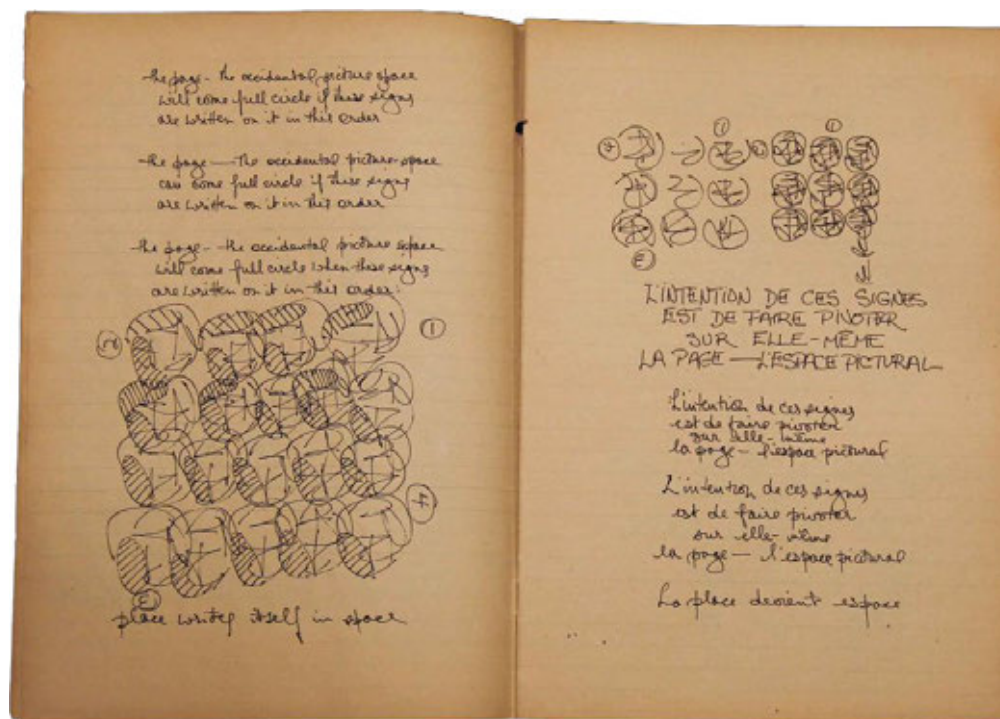 the page - the occidental picture space
will come full circle if these signs
are written on it in this order
the page — the occidental picture space
can come full circle if these signs
are written on it in this order
the page - the occidental picture space
will come full circle when these signs
are written on it in this order:
place writes itself in space
L'INTENTION DE CES SIGNES
EST DE FAIRE PIVOTER
SUR ELLE-MÊME
LA PAGE — L'ESPACE PICTURAL
L'intention de ces signes
est de faire pivoter
sur elle-même
la page — l'espace pictural
L'intention de ces signes
est de faire pivoter
sur elle-même
la page — l'espace pictural
La place devient espace